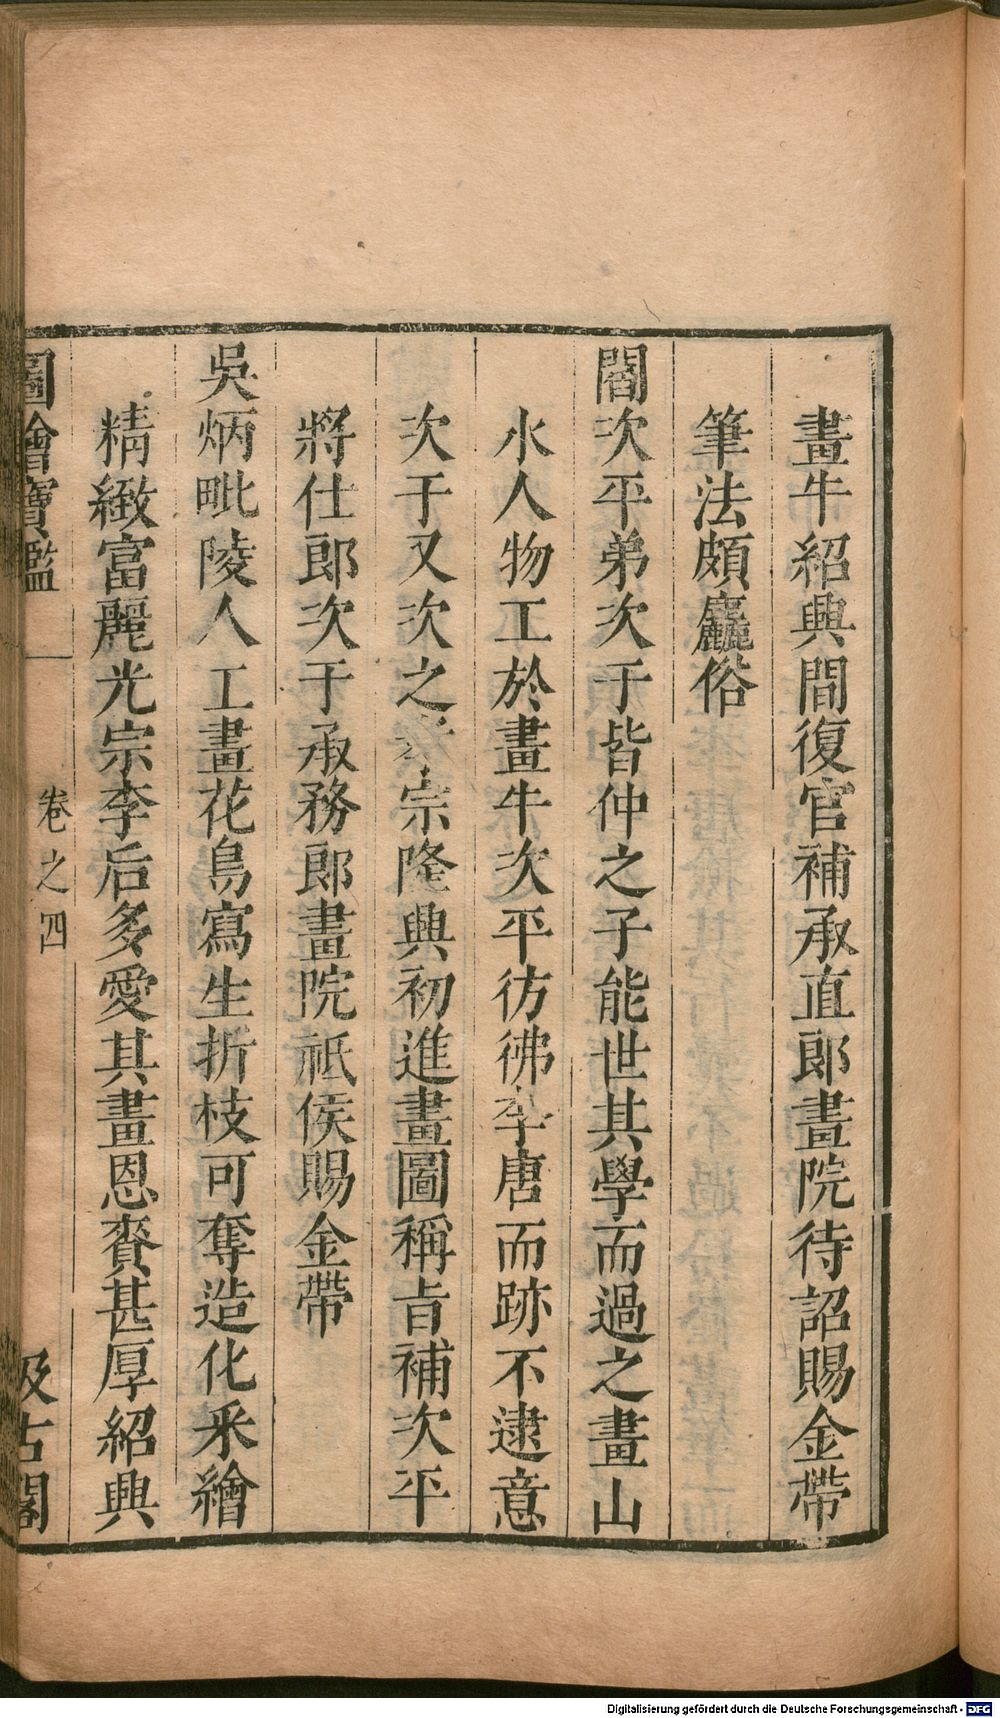 畫牛紹興間復官補承直郎畫院待詔賜金帶
筆法頗麤俗
閻次平弟次于皆仲之子能世其學而過之畫山
水人物工於畫牛次平彷彿李唐而跡不逮意
次于又次之孝宗隆興初進畫圖稱旨補次平
將仕郎次于承務郎畫院祇侯賜金帶
吳炳毗陵人工畫花鳥寫生折枝可奪造化采繪
精緻富麗光宗李后多愛其畫恩賚甚厚紹興
圖繪寶鑑 卷之四 汲古閣
Digitalisierung gefördert durch die Deutsche Forschungsgemeinschaft - DFG